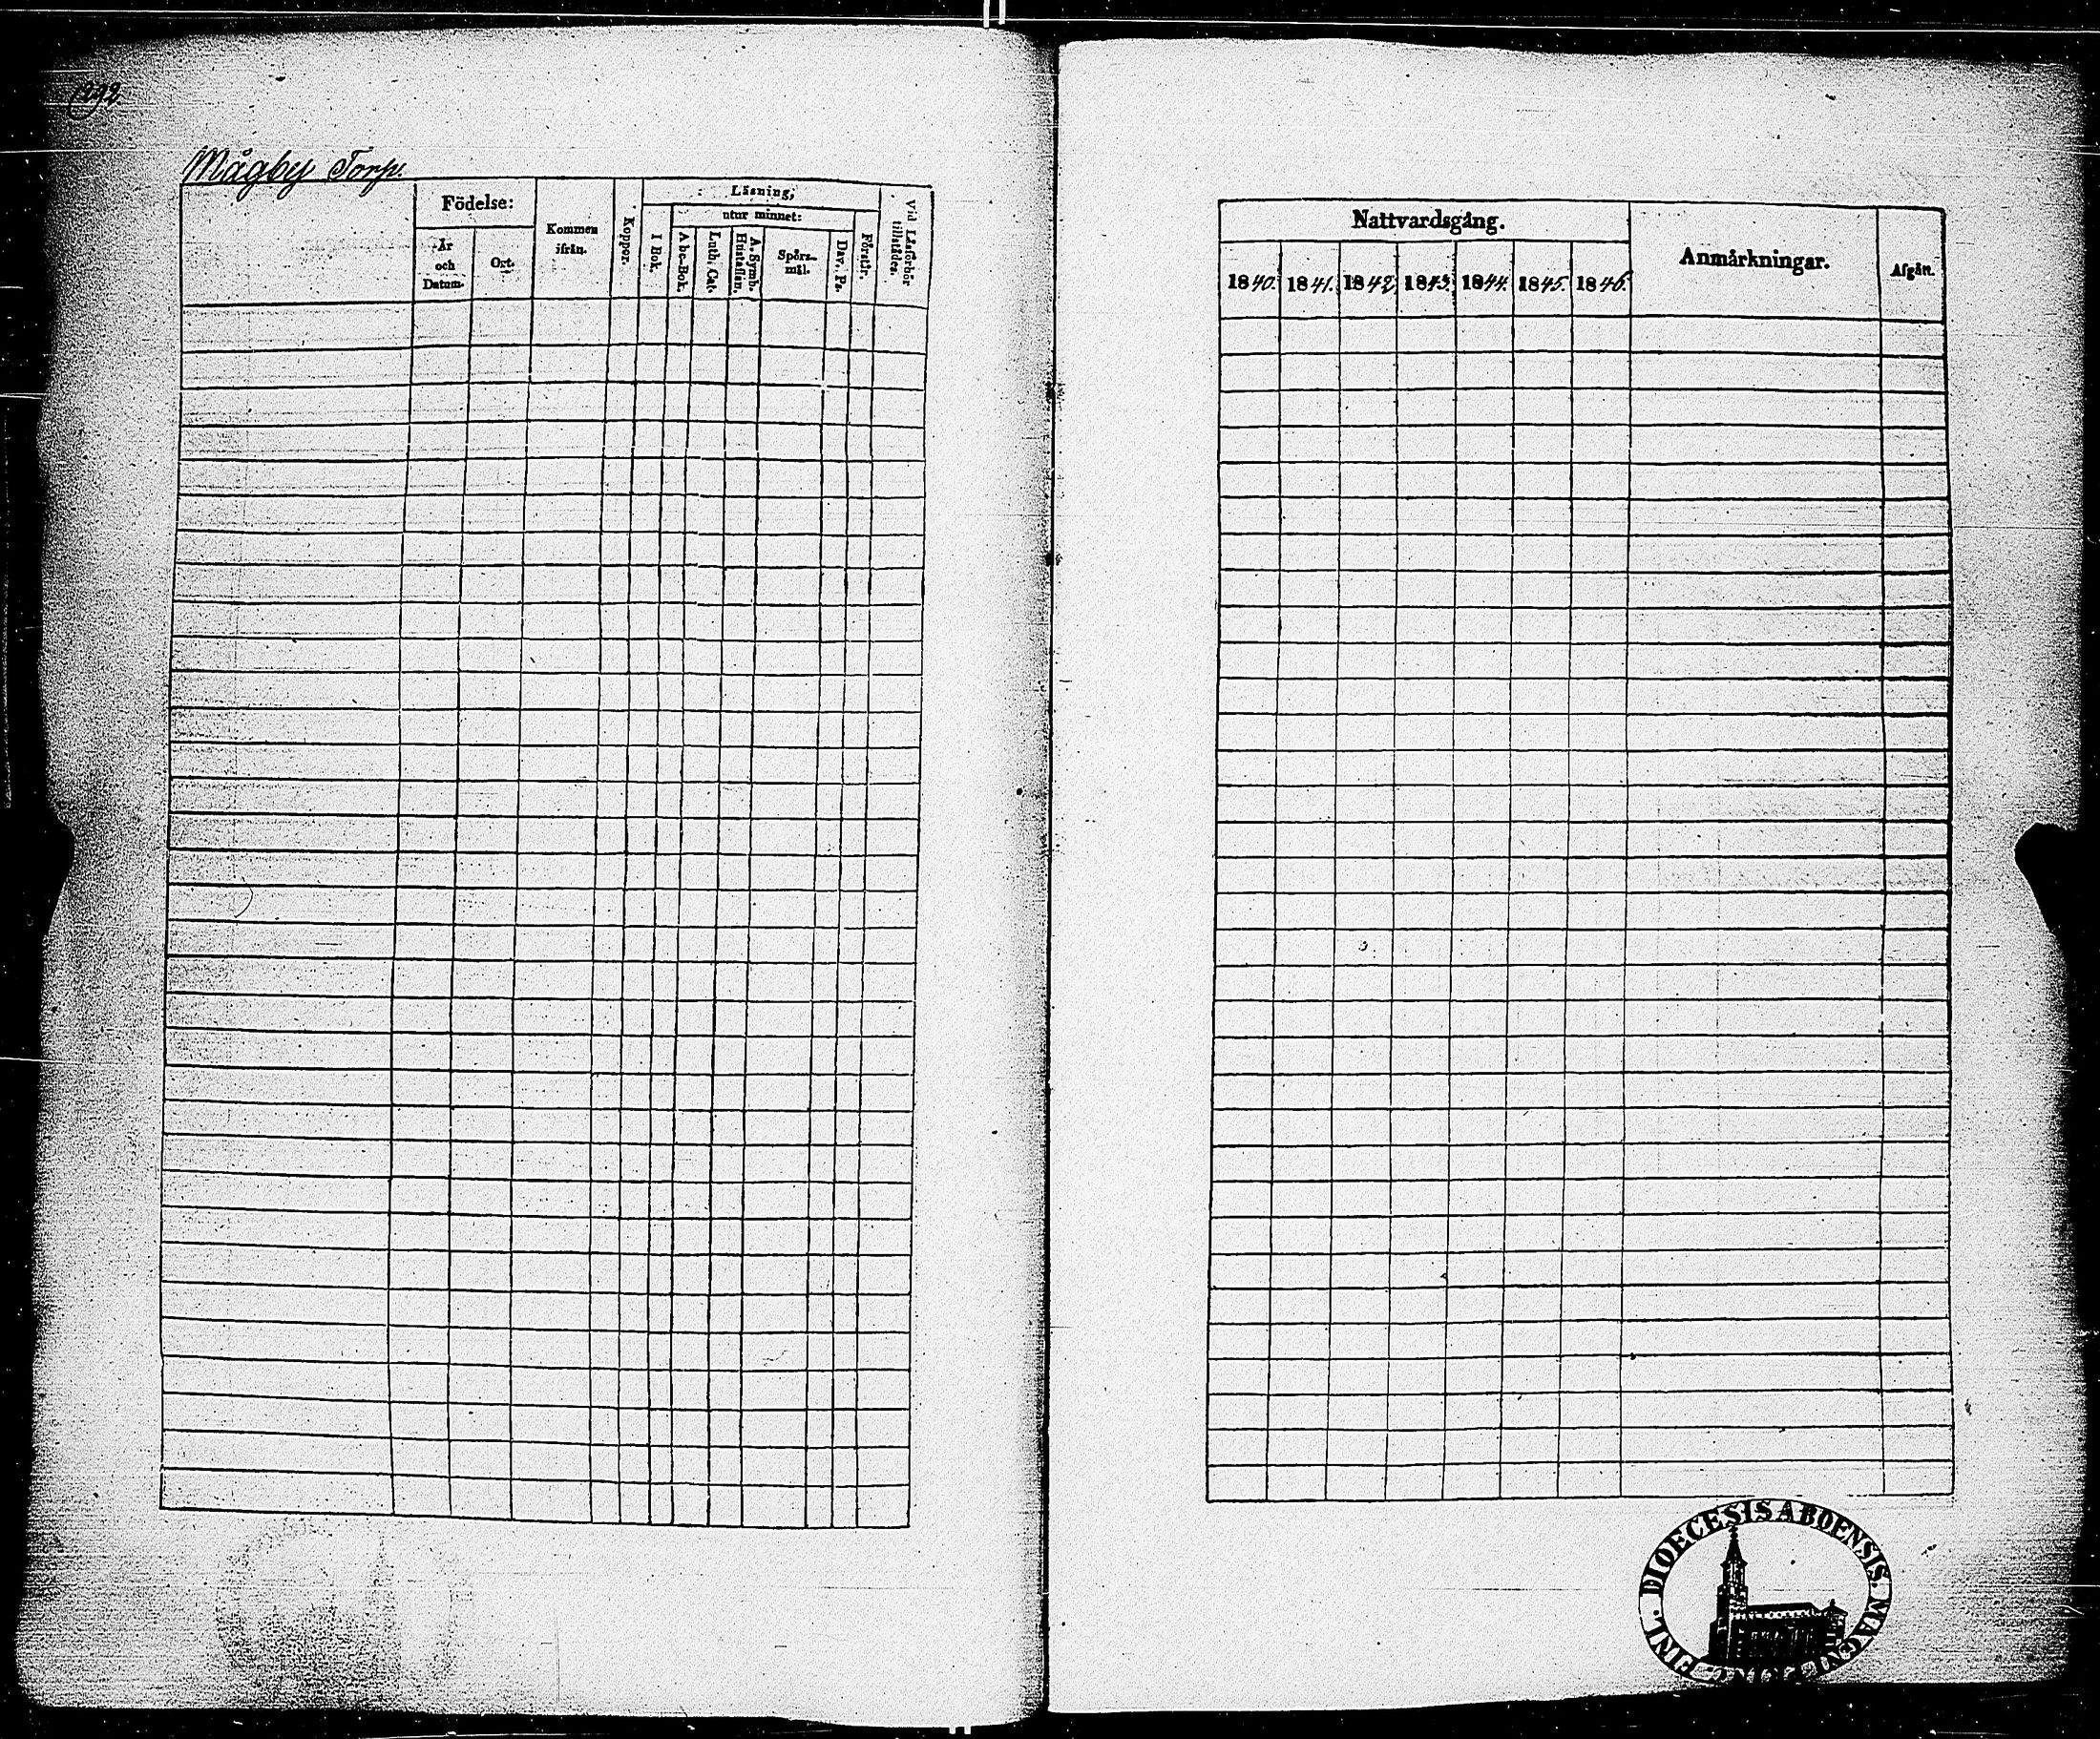 192
Mågby Torp.
Födelse:
År
och
Datum.
Ort.
Kommen
ifrån.
Koppor.
Läsning,
utur minnet:
I Bok.
Abc-Bok.
Luth. Cat.
A. Symb.
Hustaflan.
Spörs-
mål.
Dav. Ps.
Förstår.
Vid Läsförhör
tillstädes.
Nattvardsgång.
1840. 1841. 1842 1843. 1844. 1845. 1846.
Anmärkningar.
Afgått.
DIOECESIS ABOENSIS. MAGNI. PRINC. FINL.